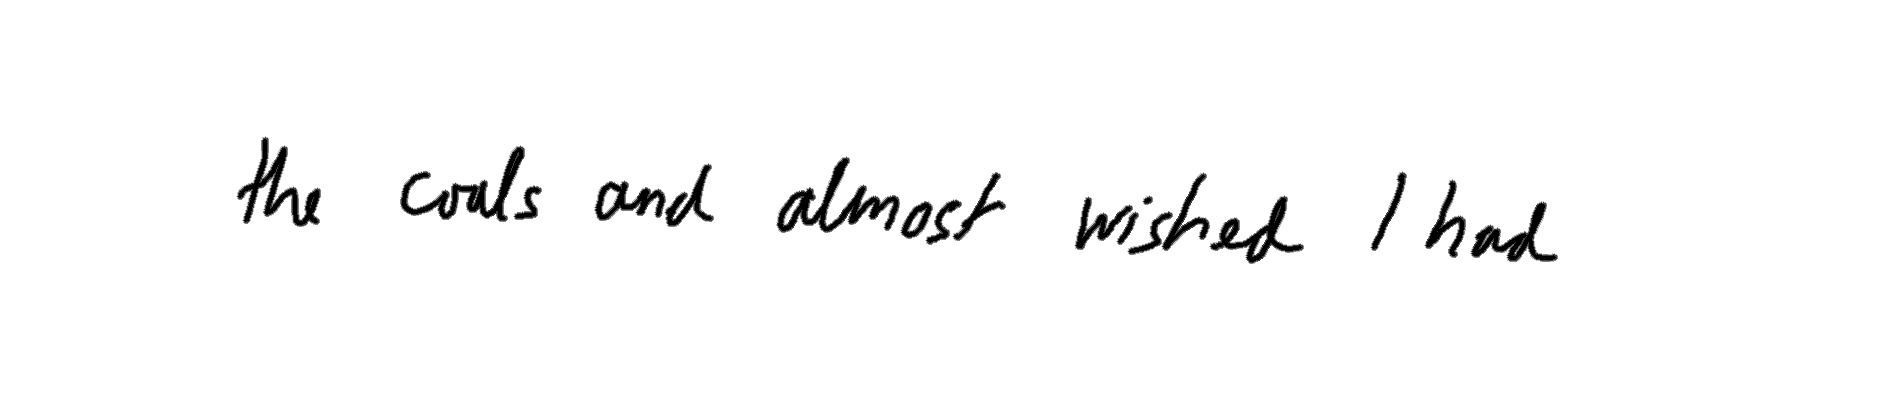 the coals and almost wished I had